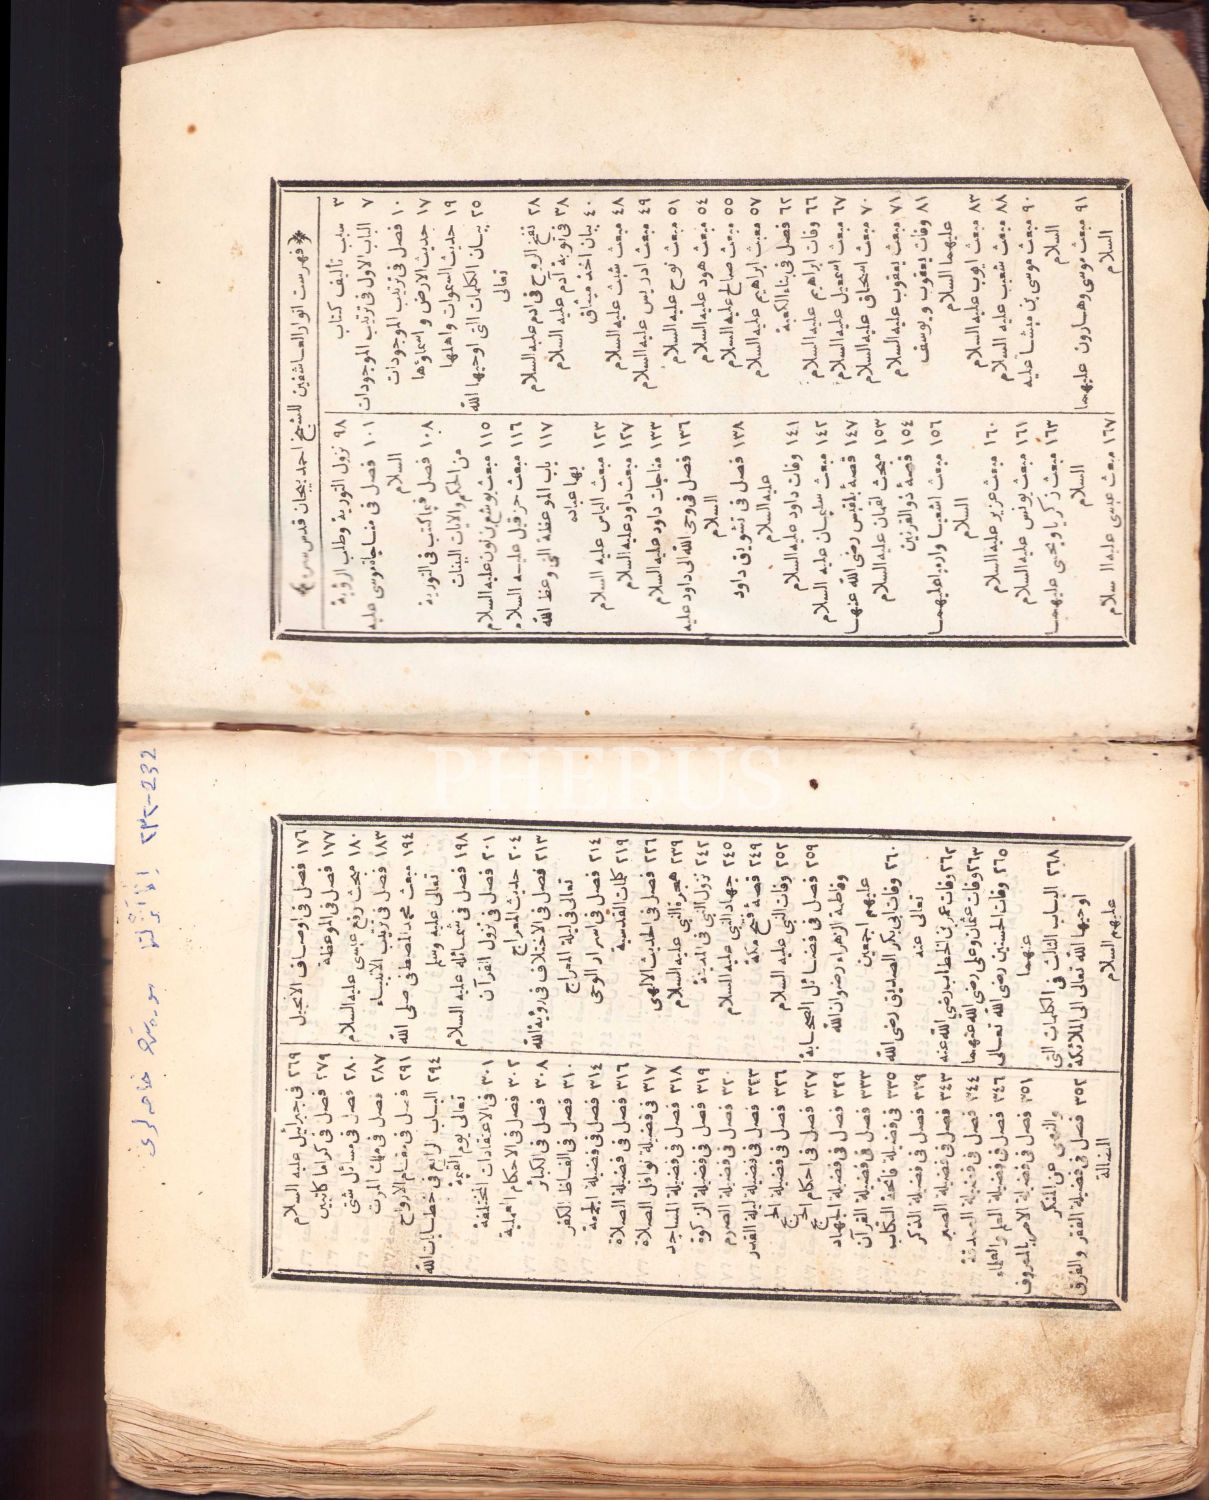 ﴿ فهرست انوار العاشقين للشيخ احمد بيجان قدس سره ﴾
٣ سبب تأليف كتاب
٧ الباب الاول فى ترتيب الموجودات
١٠ فصل فى ترتيب الموجودات
١٧ حديث الارض و اسماؤها
١٩ حديث السموات واهلها
٢٥ بيان الكلمات التى اوحيها الله
تعالى
٢٨ نفخ الروح فى ادم عليه السلام
٣٨ فى توبة آدم عليه السلام
٤٠ بيان اخذ ميثاق
٤٨ مبعث شيث عليه السلام
٤٩ مبعث ادريس عليه السلام
٥١ مبعث نوح عليه السلام
٥٤ مبعث هود عليه السلام
٥٥ مبعث صالح عليه السلام
٥٧ مبعث ابراهيم عليه السلام
٦٢ فصل فى بناء الكعبة
٦٦ وفات ابراهيم عليه السلام
٦٧ مبعث اسمعيل عليه السلام
٧٠ مبعث اسحاق عليه السلام
٧١ مبعث يعقوب عليه السلام
٨١ وفات يعقوب و يوسف
عليهما السلام
٨٣ مبعث ايوب عليه السلام
٨٨ مبعث شعيب عليه السلام
٩٠ مبعث موسى بن ميشا عليه
السلام
٩١ مبعث موسى وهارون عليهما
السلام
٩٨ نزول التورية وطلب الرؤية
١٠١ فصل فى مناجاة موسى عليه
السلام
١٠٨ فصل فيما كتب فى التورية
من الحكم والايات البينات
١١٥ مبعث يوشع بن نون عليه السلام
١١٦ مبعث حزقيل عليه السلام
١١٧ باب الموعظة التى وعظ الله
بها عباده
١٢٣ مبعث الياس عليه السلام
١٢٧ مبعث داود عليه السلام
١٣٣ مناجات داود عليه السلام
١٣٦ فصل فى وحى الله الى داود عليه
السلام
١٣٨ فصل فى تشويق داود
عليه السلام
١٤١ وفات داود عليه السلام
١٤٢ مبعث سليمان عليه السلام
١٤٧ قصة بلقيس رضى الله عنها
١٥٣ مبعث لقمان عليه السلام
١٥٤ قصة ذو القرنين
١٥٦ مبعث اشعيا وارميا عليهما
السلام
١٦٠ مبعث عزير عليه السلام
١٦١ مبعث يونس عليه السلام
١٦٣ مبعث زكريا و يحيى عليهما
السلام
١٦٧ مبعث عيسى عليه السلام
١٧٦ فصل فى اوصاف الانجيل
١٧٧ فصل فى الموعظة
١٨٠ مبحث رفع عيسى عليه السلام
١٨٣ فصل فى ترتيب الانبياء
١٩٤ مبعث محمد المصطفى صلى الله
تعالى عليه وسلم
١٩٨ فصل فى شمائله عليه السلام
٢٠١ فصل فى نزول القرآن
٢٠٤ حديث المعراج
٢١٣ فصل فى الاختلاف فى رؤية الله
تعالى فى ليلة المعراج
٢١٤ فصل فى اسرار الوحى
٢١٩ كلمات القدسية
٢٢٦ فصل فى الحديث الالهى
٢٣٩ هجرة النبى عليه السلام
٢٤٢ نزول النبى فى المدينة
٢٤٥ جهاد النبى عليه السلام
٢٤٩ قصة فتح مكة
٢٥٢ وفات النبى عليه السلام
٢٥٩ فصل فى فضائل الصحابة
وفاطمة الزهراء رضوان الله
عليهم اجمعين
٢٦٠ وفات ابى بكر الصديق رضى الله
تعالى عنه
٢٦٢ وفات عمر بن الخطاب رضى الله عنه
٢٦٣ وفات عثمان وعلى رضى الله عنهما
٢٦٥ وفات الحسنين رضى الله تعالى
عنهما
٢٦٨ الباب الثالث فى الكلمات التى
اوحيها الله تعالى الى الملائكة
عليهم السلام
٢٦٩ فى جبرائيل عليه السلام
٢٧٩ فصل فى كراما كاتبين
٢٨٠ فصل فى مسائل شتى
٢٨٧ فصل فى ملك الموت
٢٩١ فصل فى مقام الارواح
٢٩٤ الباب الرابع فى خطابات الله
تعالى يوم القيمة
٣٠١ فى الاعتقادات المختلفة
٣٠٢ فصل فى الاحكام العملية
٣٠٨ فصل فى الكبائر
٣١٠ فصل فى الفاظ الكفر
٣١٤ فصل فى فضيلة الجمعة
٣١٦ فصل فى فضيلة الصلاة
٣١٧ فى فضيلة نوافل الصلاة
٣١٨ فصل فى فضيلة المساجد
٣١٩ فصل فى فضيلة الزكوة
٣٢٠ فصل فى فضيلة الصوم
٣٢٣ فصل فى فضيلة ليلة القدر
٣٢٦ فصل فى فضيلة الحج
٣٢٧ فصل فى احكام الحج
٣٢٩ فصل فى فضيلة الجهاد
٣٣٣ فصل فى فضيلة القرآن
٣٣٥ فى فضيلة فاتحة الكتاب
٣٣٩ فصل فى فضيلة الذكر
٣٤٣ فصل فى فضيلة الصبر
٣٤٤ فصل فى فضيلة الصدقة
٣٤٦ فصل فى فضيلة العلم والعلماء
٣٥١ فصل فى فضيلة الامر بالمعروف
والنهى عن المنكر
٣٥٢ فصل فى فضيلة الفقر و الفرق
الضالة
٢٣٢-232
PHEBUS